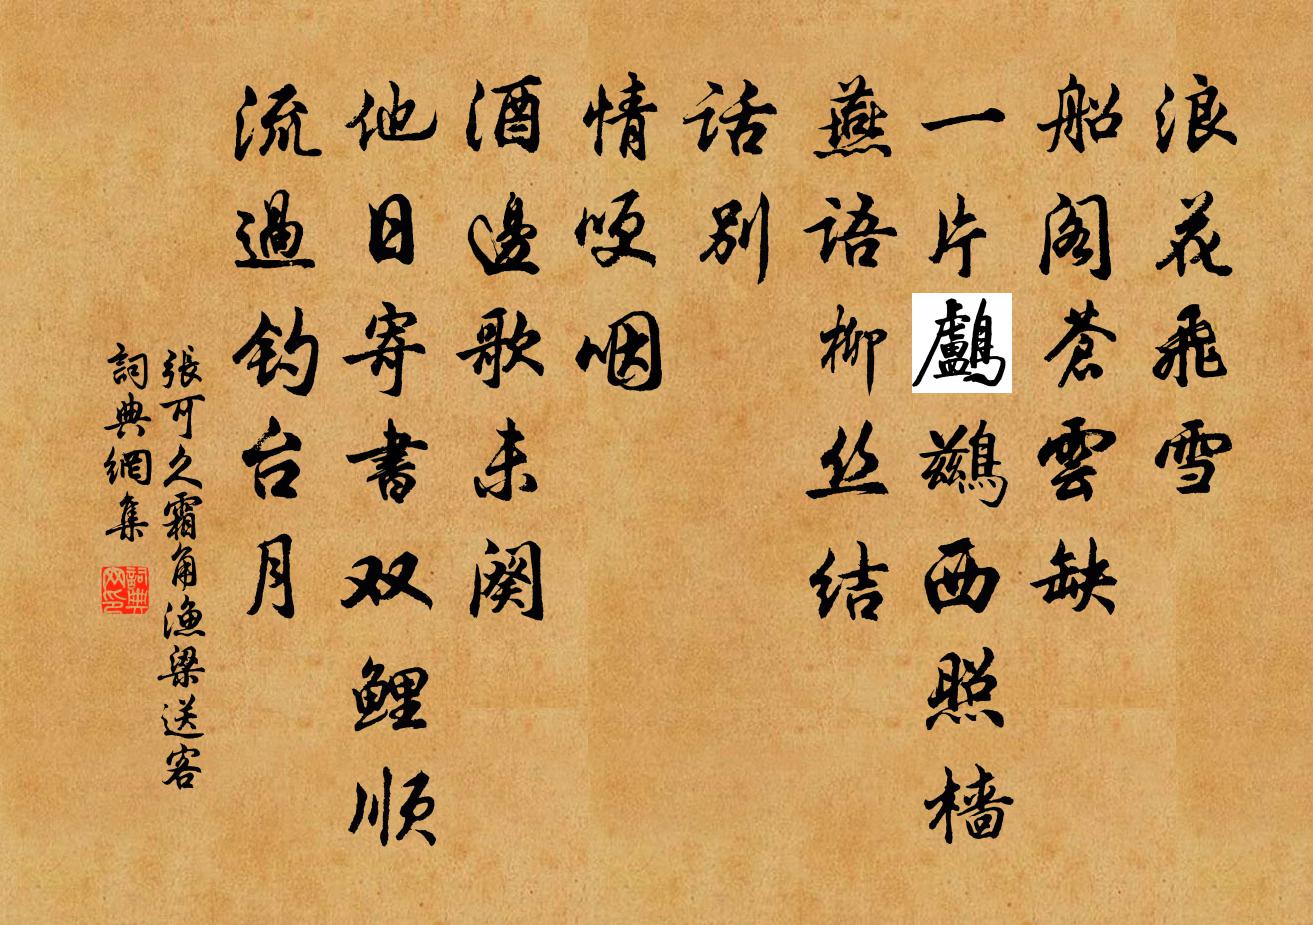 浪花飛雪
船阁蒼雲缺
一片鸕鷀西照檣
燕語柳丝结
話別
情哽咽
酒邊歌未阕
他日寄書双鲤順
流過钓台月
張可久霜角漁梁送客
詞典網集
詞典网印